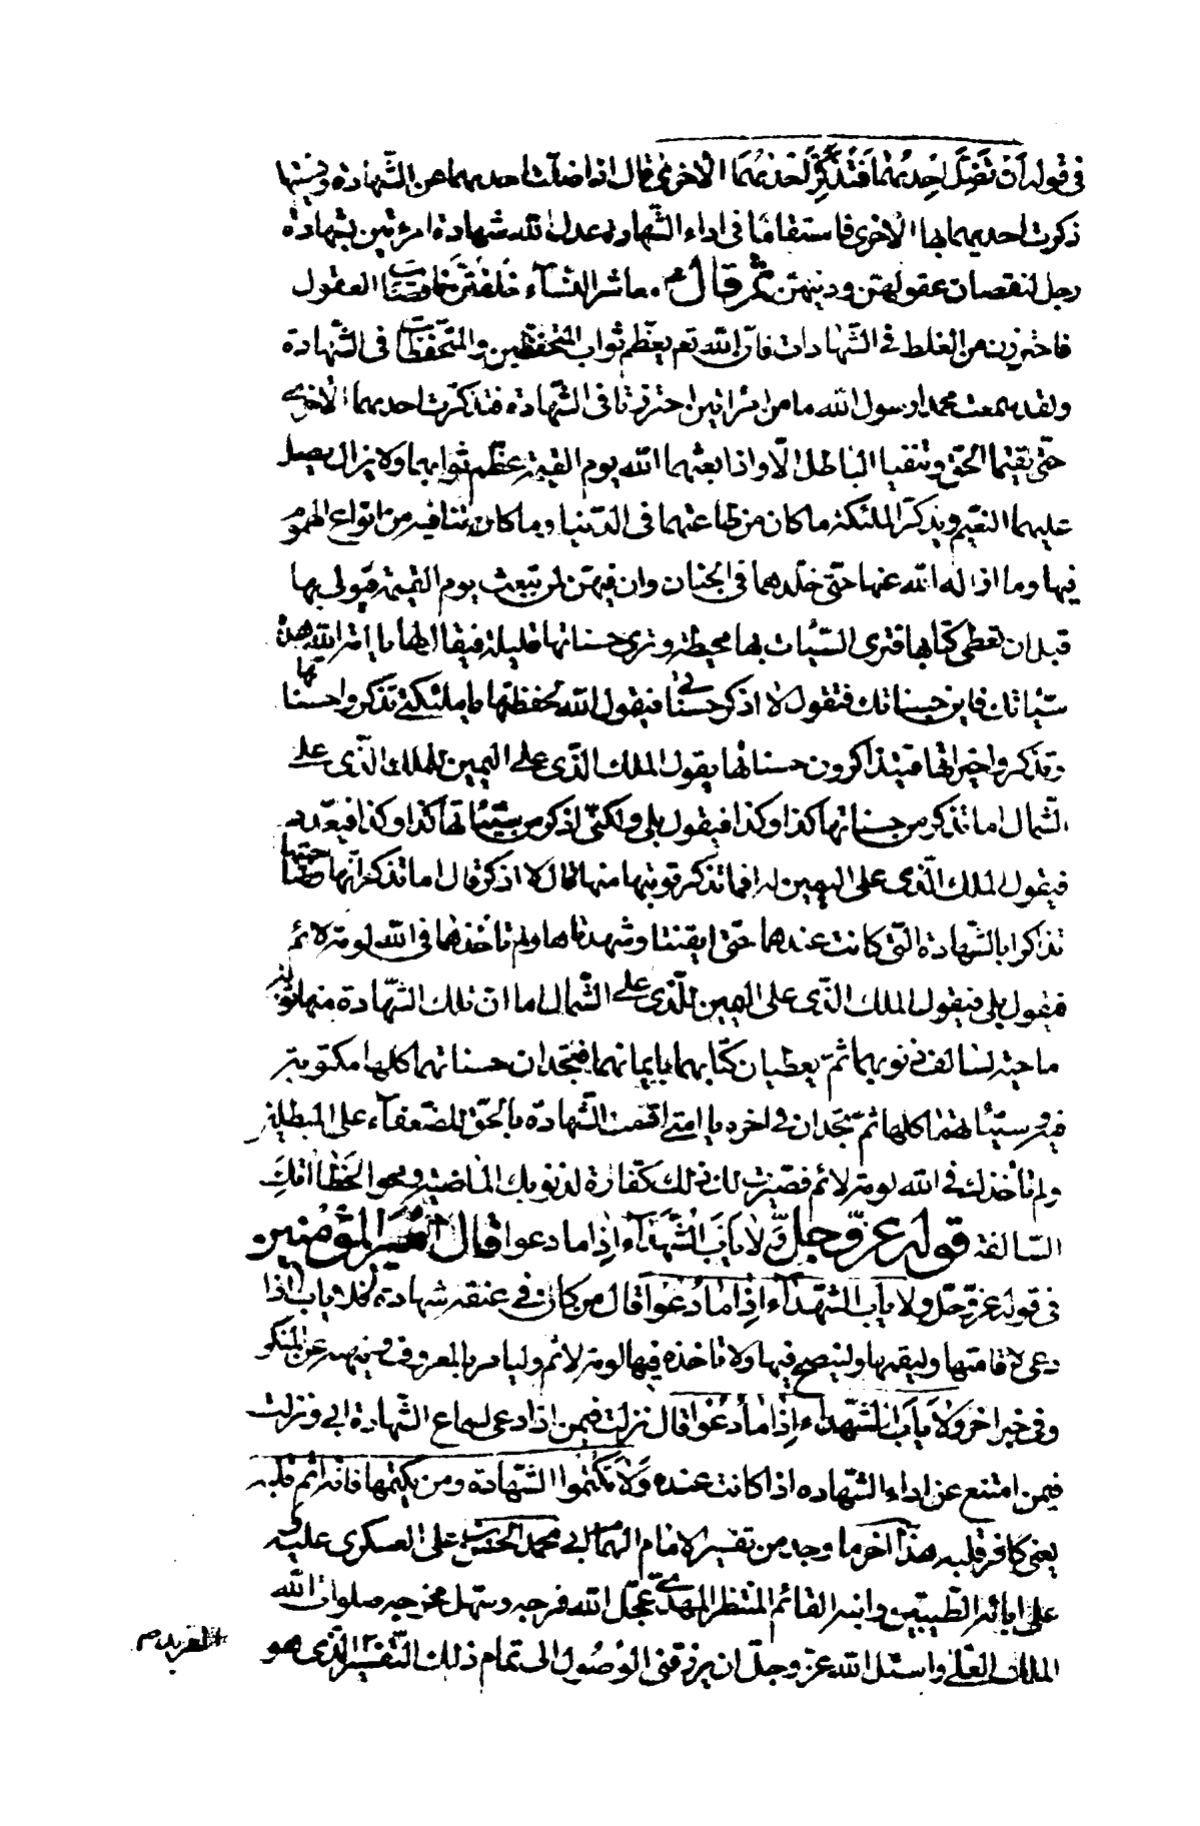 في قوله أَنْ تَضِلَّ اِحْدٰيهُمٰا فَتُذَكِّرَ اِحْدٰيهُمَا الْاُخْرىٰ قال اذا ضلّت احديهما عن الشّهادة ونسيتها
ذكرت احديهما بها الأخرى فاستقامتا في اداء الشّهادة عدل الله شهادة امرءتين بشهادة
رجل لنقصان عقولهنّ ودينهنّ ثمّ قالؑ معاشر النّسآء خلقتنّ ناقصات العقول
فاحترزن من الغلط في الشّهادات فانّ الله تعـ يعظّم ثواب المتحفّظين والمتحفّظات في الشّهادة
ولقد سمعت محمدا رسول الله ما من امرأتين احترزتا في الشّهادة فتذكّرت احديهما الأخرى
حتّى تقيما الحقّ وتنفيا الباطل الّا واذا بعثهما الله يوم القيمة عظّم ثوابهما ولا يزال يصبّ
عليهما النّعيم ويذكّر الملئكة ما كان من طاعتهما في الدّنيا وما كانتا فيه من انواع الهموم
فيها وما ازاله الله عنها حتّى خلّدهما في الجنان وان فيهنّ لمن تبعث يوم القيمة فيؤتى بها
قبل ان تعطى كتابها فترى السّيّئات بها محيطة وترى حسناتها قليلة فيقال لها يا امة الله هذه
سيّئاتك فاين حسناتك فتقول لا اذكر حسناتي فيقول الله لحفظتها يا ملئكتي تذكّروا حسناتها
وتذكّروا خيراتها فيتذاكرون حسناتها يقول الملك الّذي على اليمين للملك الّذي على
الشّمال اما تذكر من حسناتها كذا وكذا فيقول بلى ولكنّي اذكر من سيّئاتها كذا وكذا فيعدّد
فيقول الملك الّذي على اليمين له افما تذكر توبتها منها قال لا اذكر قال اما تذكر انّها وصاحبتها
تذاكرا بالشّهادة الّتي كانت عندهما حتّى ايقنتا وشهدتاها ولم تأخذهما في الله لومة لائم
فيقول بلى فيقول الملك الّذي على اليمين للّذي على الشّمال اما انّ تلك الشّهادة منهما توبة
ماحية لسالف ذنوبهما ثمّ يعطيان كتابهما بايمانهما فتجدان حسناتهما كلّها مكتوبة
فيه وسيّئاتهما كلّها ثمّ تجدان في اخره يا امتي اقمت الشّهادة بالحقّ للضّعفآء على المبطلين
ولم تأخذك في الله لومة لائم فصيّرت لك ذلك كفّارة لذنوبك الماضية ومحوا لخطاياك
السّالفة قوله عزّ وجلّ وَلا يَأبَ الشُّهَدَآءُ اِذا ما دعوا قال أمير المؤمنين
في قوله عزّ وجلّ ولا يأب الشّهدآء اذا ما دُعوا قال من كان في عنقه شهادة فلا ياب اذا
دعي لاقامتها وليقمها ولينصح فيها ولا تاخذه فيها لومة لائم وليامر بالمعروف ولينه عن المنكر
وفي خبر اخر وَلا يَأبَ الشّهدآء اِذا ما دُعُوا قال نزلت فيمن اذا دعي لسماع الشّهادة ابى ونزلت
فيمن امتنع عن اداء الشّهاده اذا كانت عنده وَلا تَكْتُموا الشّهادة ومن يكتمها فانّه اثم قلبه
يعني كافر قلبه هذا اخر ما وجد من تفسير الامام الهمام ابي محمد الحسن بن علي العسكري عليه و
على ابائه الطّيّبين وابنه القائم المنتظر المهدي عجّل الله فرجه وسهّل مخرجه صلوات الله
الملك العلي واسئل الله عزّ وجلّ ان يرزقني الوصول الى تمام ذلك التّفسير الّذي هو